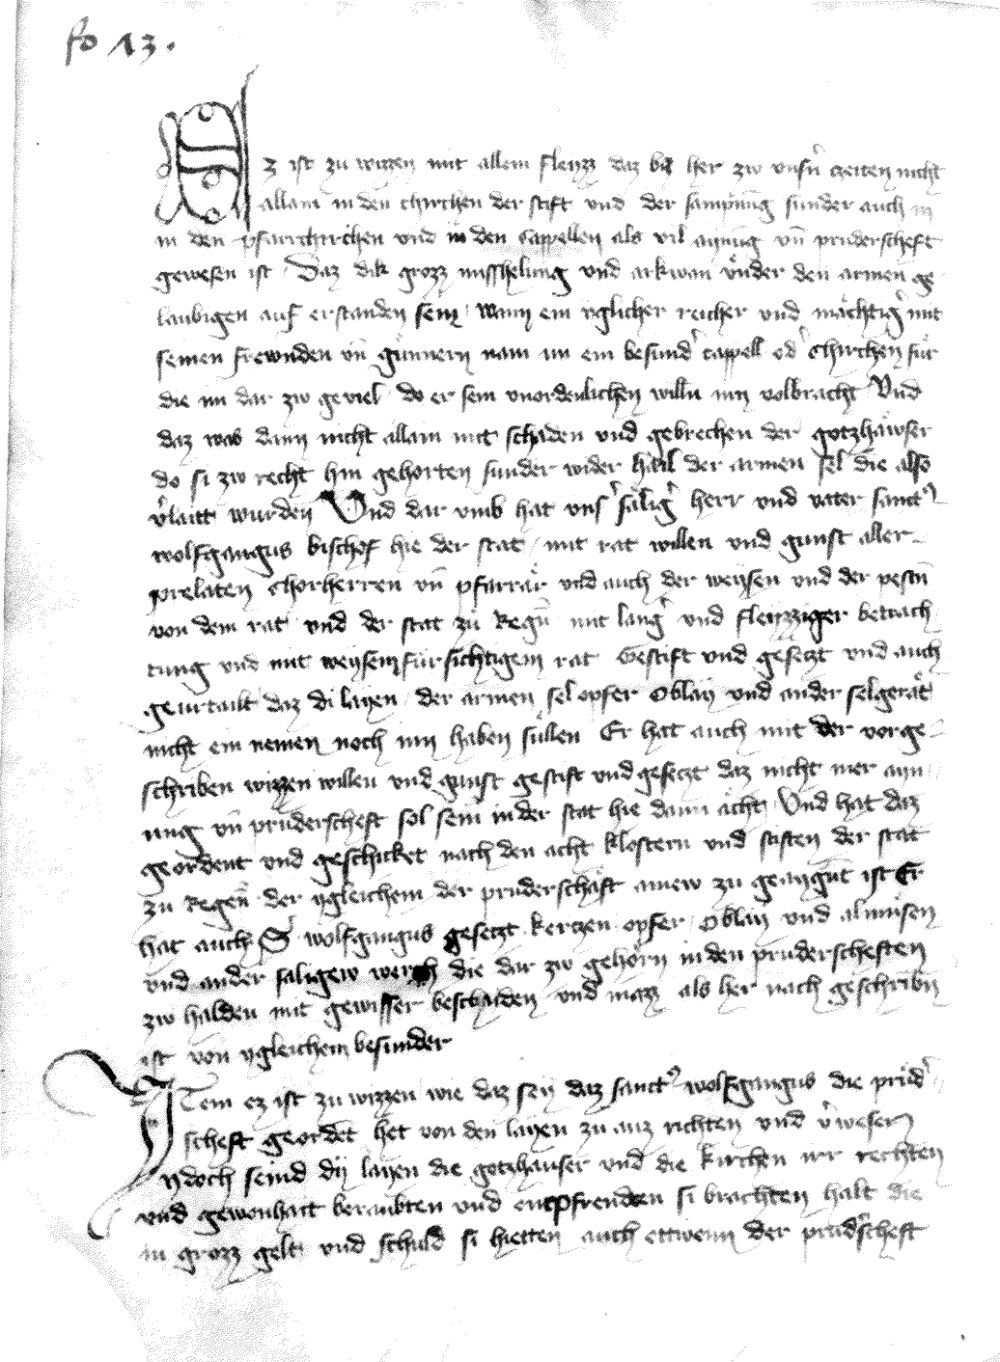 fo 13.
Ez ist zu wizzen mit allem fleyzz daz biz her zw unsn̄ czeiten nicht
allain in den chirchen der stift und der sampnūg sunder auch in
in den pfarrchirchen vnd in den cappellen als vil aynūg vn̄ pruderscheft
gewesen ist Daz dik grozz misshelung vnd arkwan vnder den armen ge
laubigen auf erstanden sein wann ein yglicher reicher vnd mächtiger mit
seinen frewnden vn̄ günnern nam im ein besunder cappell oder chirchen für
die im dar zw geviel do er sein vnordenlichen willn inn volbracht Vnd
daz was dann nicht allain mit schaden vnd gebrechen der gotzhäwser
do si zw recht hin gehorten sunder wider hail der armen sel die also
v̄laitt wurden Vnd dar vmb hat vns sälig herr vnd vater sanct9
wolfgangus bischof hie der stat mit rat willen vnd gunst aller
prelaten chorherren vn̄ pfarrär vnd auch der weysen vnd der pestn̄
von dem rat vnd der stat zu Regn̄ mit lang vnd fleyzziger betrach
tung vnd mit weysem fürsichtigem rat Gestift vnd gesetzt vnd auch
geurtailt daz di layen der armen sel opfer oblay vnd ander selgerät
nicht ein nemen noch inn haben süllen Er hat auch mit der vorge
schriben wizzen willen vnd gunst gestift vnd gesetzt daz nicht mer ayn
nung vn̄ pruderscheft sol sein in der stat hie dann ächt Vnd hat daz
geordent vnd geschicket nach den acht klostern vnd stiften der stat
zu Regen̄ der ygleichem der pruderschäft ainew zu geaygn̄t ist Er
hat auch S wolfgangus gesetzt kerczen opfer oblay vnd almusen
vnd ander säligew werch die dar zw gehörn in den pruderscheften
zw halden mit gewisser beschaiden vnd mazz als her nach geschribn̄
ist von ygleichem besunder
Item ez ist zu wizzen wie daz sey daz sanct9 wolfgangus die prüd
scheft geordet het von den layen zu auz richten vnd v̄wesen
ydoch seind dy layen die gotzhauser vnd die kirchen irr rechten
vnd gewonhait beraubten vnd entpfrendten si brachten halt die
in grozz gelt vnd schuld si hietten auch ettwenn der prüdscheft